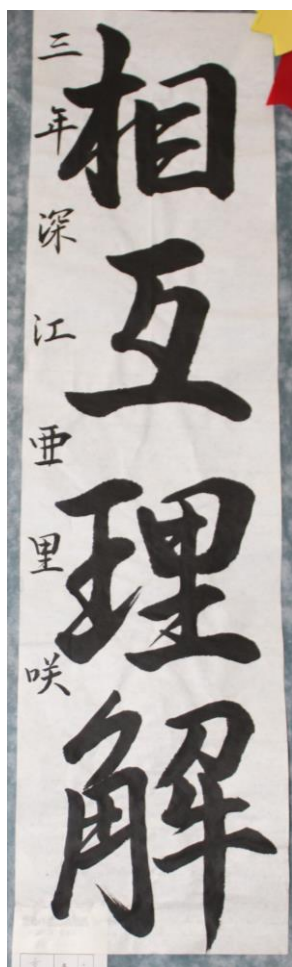 相互理解
三年深江亜里咲